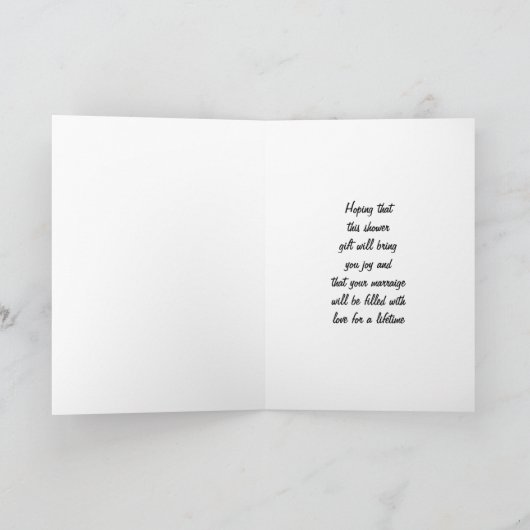 Hoping that
this shower
gift will bring
you joy and
that your marraige
will be filled with
love for a lifetime